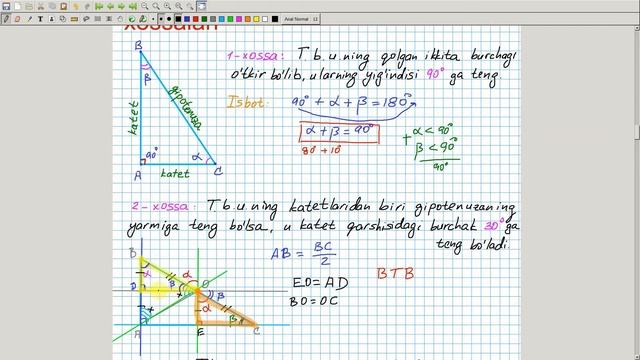 xossalari
1-xossa: T.b.u.ning qolgan ikkita burchagi
o'tkir bo'lib, ularning yig'indisi 90° ga teng.
Isbot: 90° + α + β = 180°
α + β = 90°
80° + 10°
+ α < 90°
β < 90°
90°
B
β
katet
gipotenuza
90°
α
A
katet
C
2-xossa: T.b.u.ning katetlaridan biri gipotenuzaning
yarmiga teng bo'lsa, u katet qarshisidagi burchak 30° ga
teng bo'ladi.
AB = BC/2
EO = AD
BO = OC
BTB
B
α
D
β
α
O
β
x
x
α
A
E
β
C